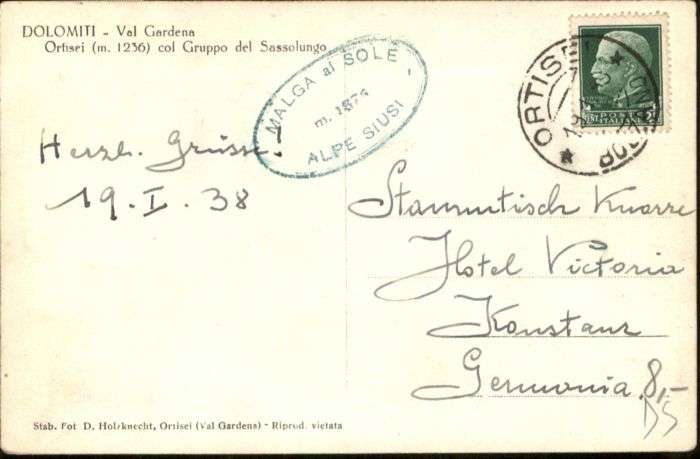 DOLOMITI - Val Gardena
Ortisei (m. 1236) col Gruppo del Sassolungo
MALGA al SOLE
m. 1874
ALPE SIUSI
ORTISEI
POSTE ITALIANE
Herzl. Grüsse!
19. I. 38
Stammtisch Knorre
Hotel Victoria
Konstanz
Germania
8,-
DS
Stab. Fot D. Holzknecht, Ortisei (Val Gardena) - Riprod. vietata